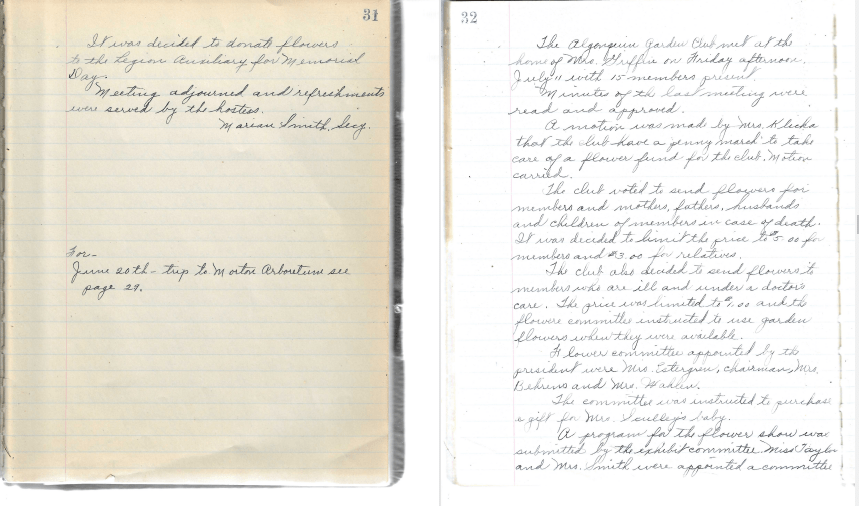 31
It was decided to donate flowers
to the Legion Auxiliary for Memorial
Day.
Meeting adjourned and refreshments
were served by the hostess.
Marian Smith, Secy.
For-
June 20th - trip to Morton Arboretum see
page 29.
32
The Algonquin Garden Club met at the
home of Mrs. Griffin on Friday afternoon.
July 11 with 15 members present.
Minutes of the last meeting were
read and approved.
A motion was made by Mrs. Klicka
that the club have a penny march to take
care of a flower fund for the club. Motion
carried.
The club voted to send flowers for
members and mothers, fathers, husbands
and children of members in case of death.
It was decided to limit the price to $5.00 for
members and $3.00 for relatives.
The club also decided to send flowers to
members who are ill and under a doctor's
care. The price was limited to and the
flower committee instructed to use garden
flowers when they were available.
Flower committee appointed by the
president were Mrs. Estergren, chairman, Mrs.
Behrens and Mrs. Wahlen.
The committee was instructed to purchase
a gift for Mrs. Scully's baby.
A program for the flower show was
submitted by the exhibit committee. Miss Taylor
and Mrs. Smith were appointed a committee